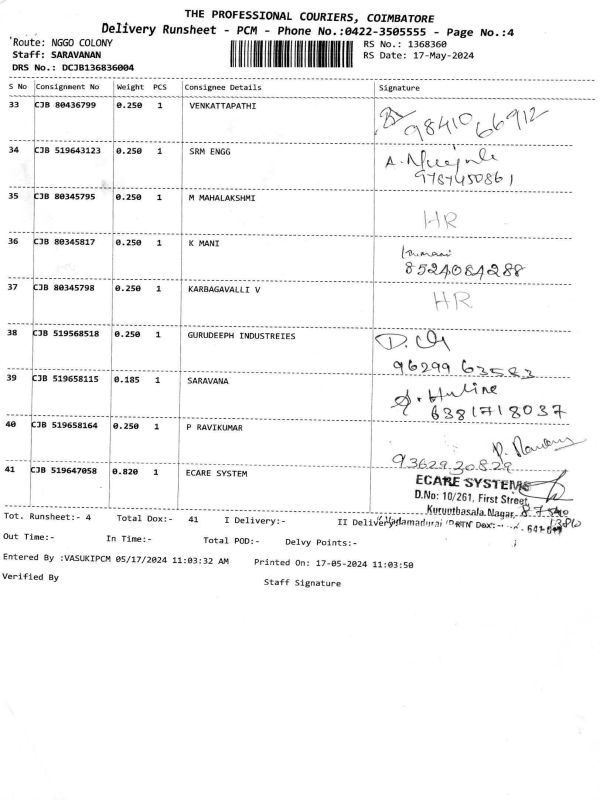 THE PROFESSIONAL COURIERS, COIMBATORE
Delivery Runsheet - PCM - Phone No.:0422-3505555 - Page No.:4
Route: NGGO COLONY
RS No.: 1368360
Staff: SARAVANAN
RS Date: 17-May-2024
DRS No.: DCJB136836004
S No Consignment No Weight PCS Consignee Details Signature
33 CJB 80436799 0.250 1 VENKATTAPATHI
98410 66912
34 CJB 519643123 0.250 1 SRM ENGG
9787450861
35 CJB 80345795 0.250 1 M MAHALAKSHMI
HR
36 CJB 80345817 0.250 1 K MANI
8524084288
37 CJB 80345798 0.250 1 KARBAGAVALLI V
HR
38 CJB 519568518 0.250 1 GURUDEEPH INDUSTREIES
96299 63583
39 CJB 519658115 0.185 1 SARAVANA
6381718037
40 CJB 519658164 0.250 1 P RAVIKUMAR
9362930829
41 CJB 519647058 0.820 1 ECARE SYSTEM
ECARE SYSTEMS
D.No: 10/261, First Street,
Kurunthasala Nagar,
Tot. Runsheet:- 4 Total Dox:- 41 I Delivery:- II Delivery:-
Out Time:- In Time:- Total POD:- Delvy Points:-
Entered By :VASUKIPCM 05/17/2024 11:03:32 AM Printed On: 17-05-2024 11:03:50
Verified By
Staff Signature